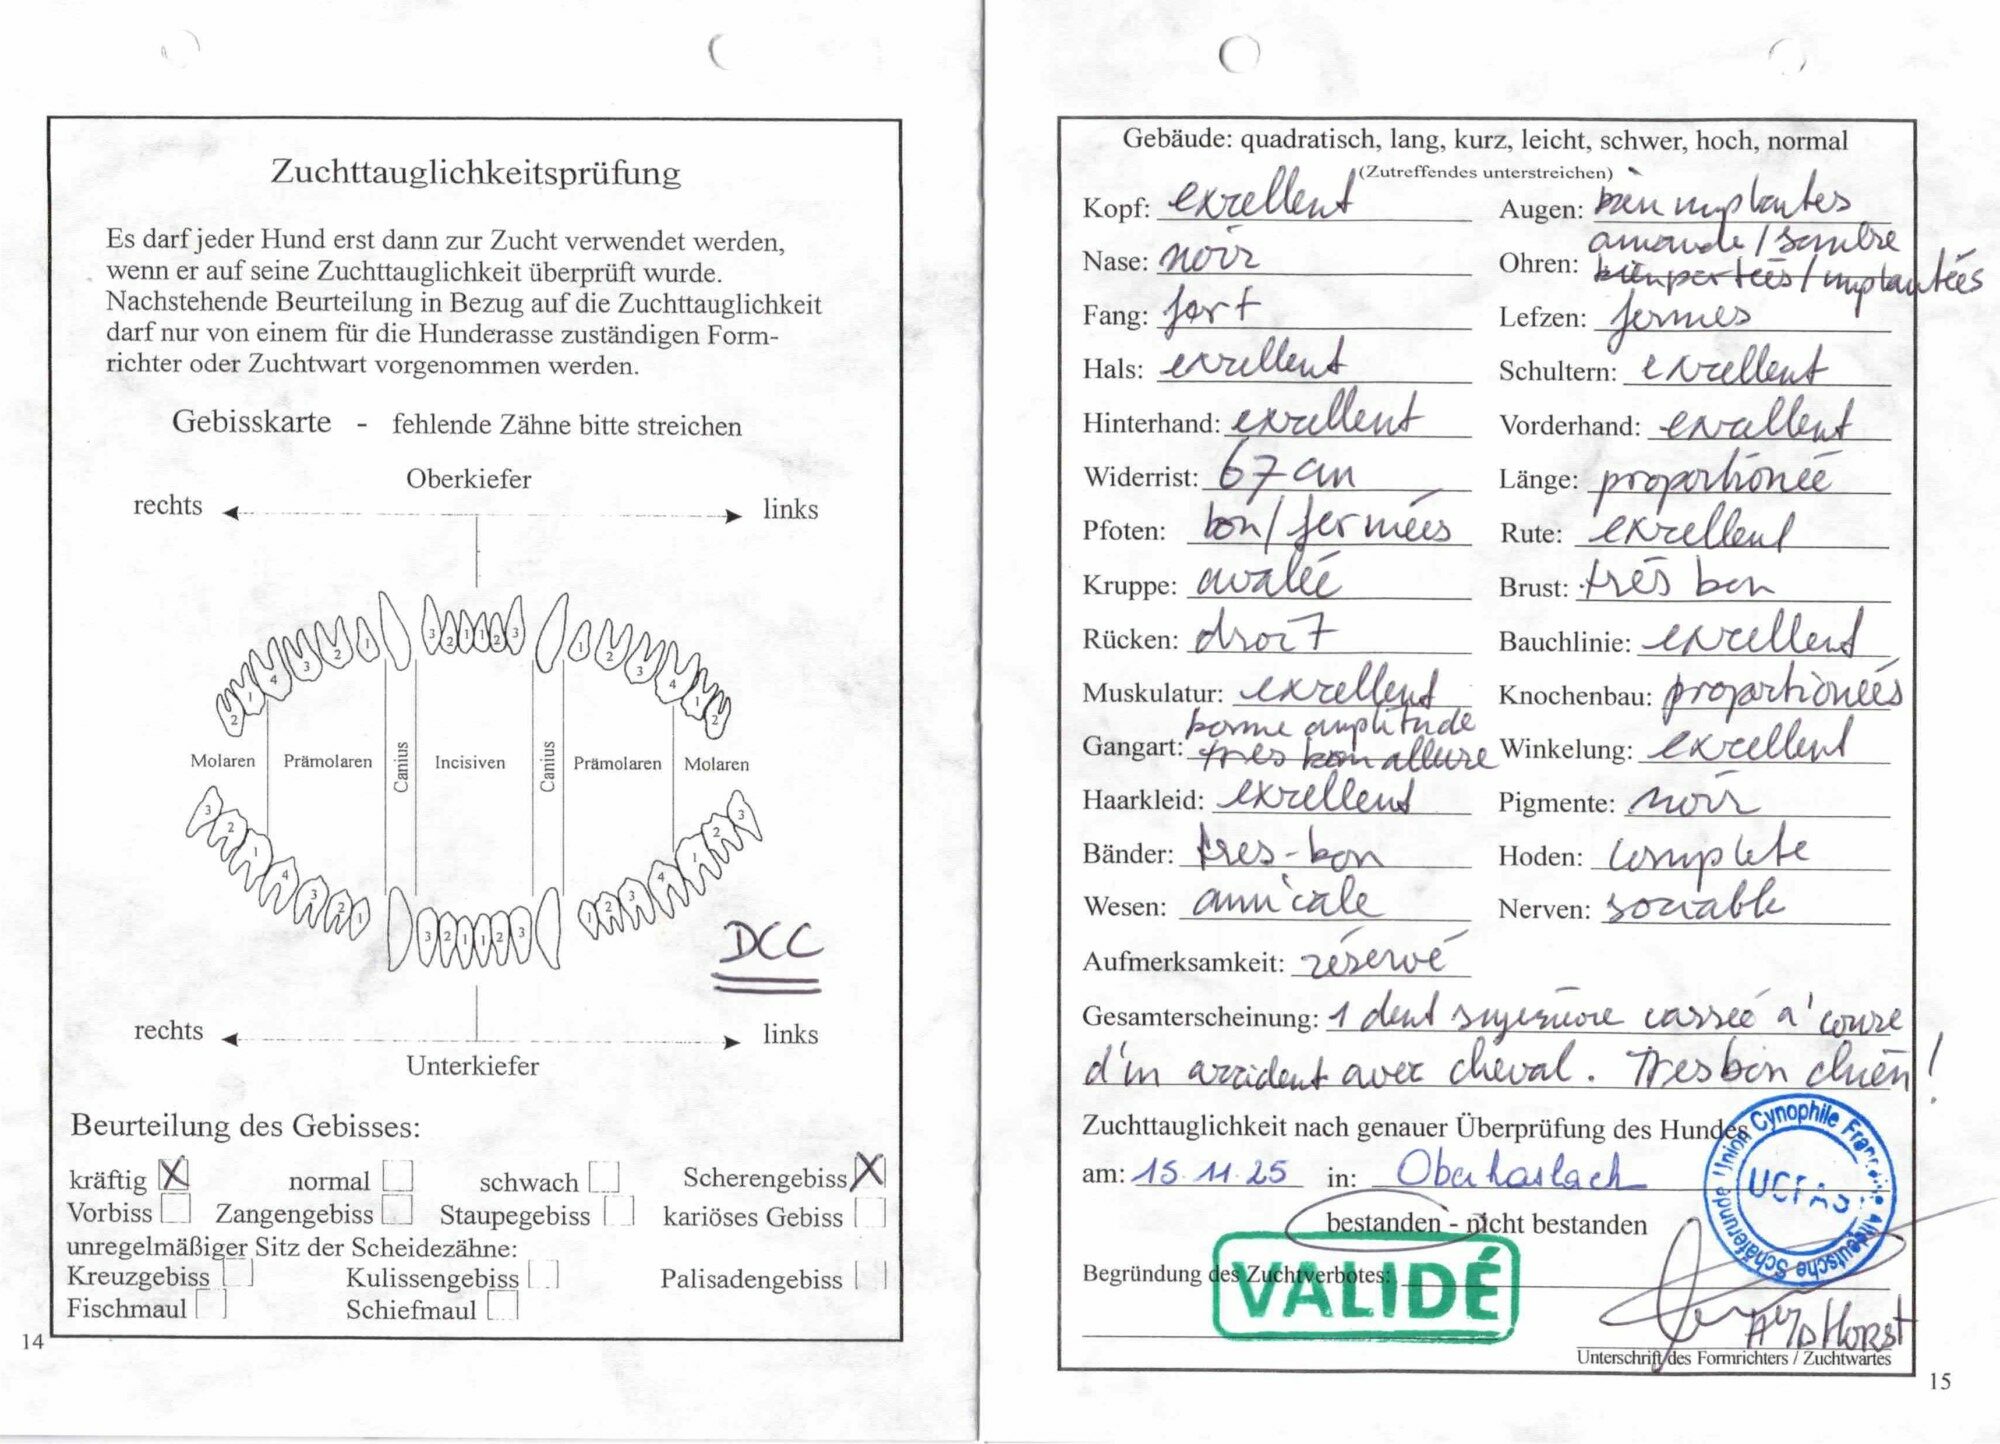 Zuchttauglichkeitsprüfung
Es darf jeder Hund erst dann zur Zucht verwendet werden,
wenn er auf seine Zuchttauglichkeit überprüft wurde.
Nachstehende Beurteilung in Bezug auf die Zuchttauglichkeit
darf nur von einem für die Hunderasse zuständigen Form-
richter oder Zuchtwart vorgenommen werden.
Gebisskarte - fehlende Zähne bitte streichen
Oberkiefer
rechts links
3 2 1 1 2 3
1 2 3 4 1 2
2 1 4 3 2 1
Molaren Prämolaren Canius Incisiven Canius Prämolaren Molaren
3 2 1 4 3 2 1
3 2 1 1 2 3
1 2 3 4 1 2 3
DCC
rechts links
Unterkiefer
Beurteilung des Gebisses:
kräftig X normal schwach Scherengebiss X
Vorbiss Zangengebiss Staupegebiss kariöses Gebiss
unregelmäßiger Sitz der Scheidezähne:
Kreuzgebiss Kulissengebiss Palisadengebiss
Fischmaul Schiefmaul
14
Gebäude: quadratisch, lang, kurz, leicht, schwer, hoch, normal
(Zutreffendes unterstreichen)
Kopf: exellent Augen: bien implantes
amande / sombre
Nase: noir Ohren: bien portées / implantées
Fang: fort Lefzen: fermes
Hals: exellent Schultern: exellent
Hinterhand: exellent Vorderhand: exellent
Widerrist: 67 cm Länge: proportionée
Pfoten: bon / fermées Rute: exellent
Kruppe: avalée Brust: très bon
Rücken: droit Bauchlinie: exellent
Muskulatur: exellent Knochenbau: proportionées
bonne amplitude
Gangart: tres bon allure Winkelung: exellent
Haarkleid: exellent Pigmente: noir
Bänder: tres-bon Hoden: complete
Wesen: amicale Nerven: sociable
Aufmerksamkeit: réservé
Gesamterscheinung: 1 dent superieure cassée à coure
d'un accident avec cheval. Tres bon chien!
Zuchttauglichkeit nach genauer Überprüfung des Hundes
am: 15.11.25 in: Oberhaslach
bestanden - nicht bestanden
Begründung des Zuchtverbotes:
VALIDÉ
Union Cynophile Française Altdeutsche Schäferhunde
UCFAS
HORST
Unterschrift des Formrichters / Zuchtwartes
15